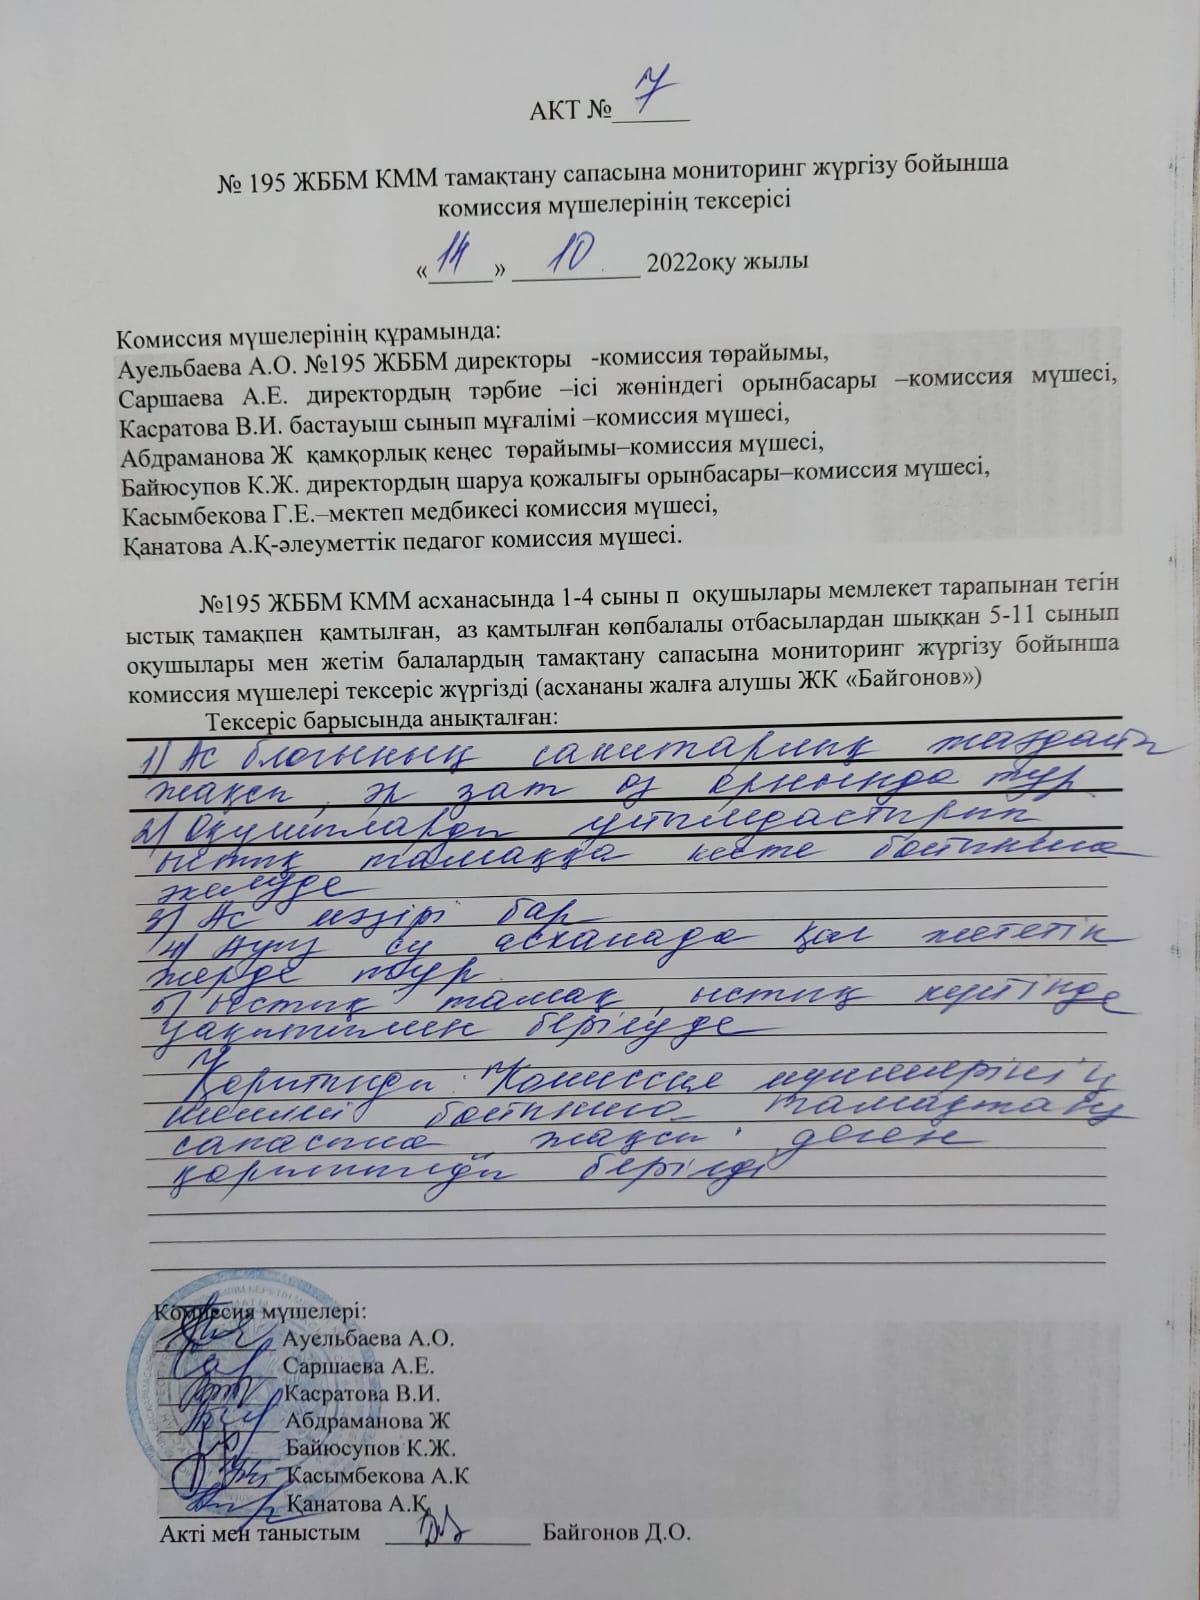 АКТ № 7
№ 195 ЖББМ КММ тамақтану сапасына мониторинг жүргізу бойынша
комиссия мүшелерінің тексерісі
«14» 10 2022оқу жылы
Комиссия мүшелерінің құрамында:
Ауельбаева А.О. №195 ЖББМ директоры -комиссия төрайымы,
Саршаева А.Е. директордың тәрбие –ісі жөніндегі орынбасары –комиссия мүшесі,
Касратова В.И. бастауыш сынып мұғалімі –комиссия мүшесі,
Абдраманова Ж қамқорлық кеңес төрайымы–комиссия мүшесі,
Байюсупов К.Ж. директордың шаруа қожалығы орынбасары–комиссия мүшесі,
Касымбекова Г.Е.–мектеп медбикесі комиссия мүшесі,
Қанатова А.Қ-әлеуметтік педагог комиссия мүшесі.
№195 ЖББМ КММ асханасында 1-4 сыны п оқушылары мемлекет тарапынан тегін
ыстық тамақпен қамтылған, аз қамтылған көпбалалы отбасылардан шыққан 5-11 сынып
оқушылары мен жетім балалардың тамақтану сапасына мониторинг жүргізу бойынша
комиссия мүшелері тексеріс жүргізді (асхананы жалға алушы ЖК «Байгонов»)
Тексеріс барысында анықталған:
1) Ас блогының санитарлық жағдайы
жақсы, әр зат өз орнында тұр
2) Оқушыларды ұйымдастырып
ыстық тамаққа кесте бойынша
әкелуде
3) Ас мәзірі бар
4) Ауыз су асханада қол жететін
жерде тұр
5) Ыстық тамақ ыстық күйінде
уақытымен берілуде
Қорытынды: Комиссия мүшелерінің
шешімі бойынша тамақтану
сапасына "жақсы" деген
қорытынды берілді
Комиссия мүшелері:
Ауельбаева А.О.
Саршаева А.Е.
Касратова В.И.
Абдраманова Ж
Байюсупов К.Ж.
Касымбекова А.К
Қанатова А.Қ
Акті мен таныстым Байгонов Д.О.